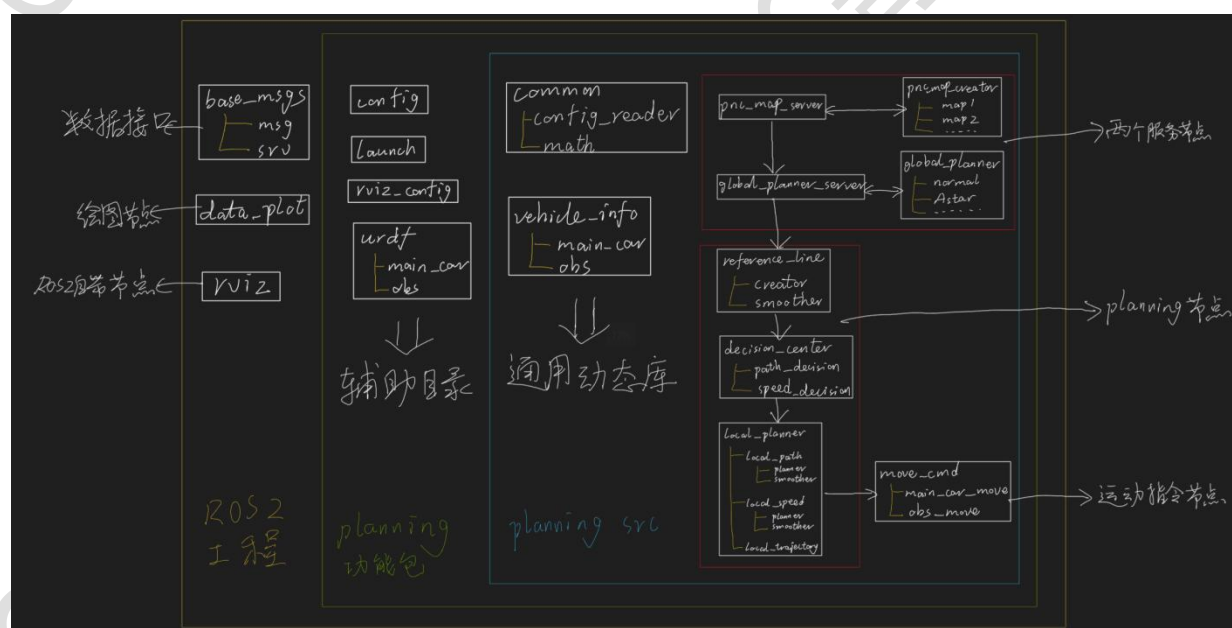 类数据接口
base_msgs
msg
srv
绘图节点
data_plot
ROS2自带节点
rviz
ROS2
工程
config
launch
rviz_config
urdf
main_car
obs
辅助目录
planning
功能包
common
config_reader
math
vehicle_info
main_car
obs
通用动态库
planning src
pnc_map_server
pnc_map_creator
map1
map2
......
global_planner_server
global_planner
normal
Astar
......
两个服务节点
reference_line
creator
smoother
decision_center
path_decision
speed_decision
local_planner
local_path
planner
smoother
local_speed
planner
smoother
local_trajectory
planning节点
move_cmd
main_car_move
obs_move
运动指令节点